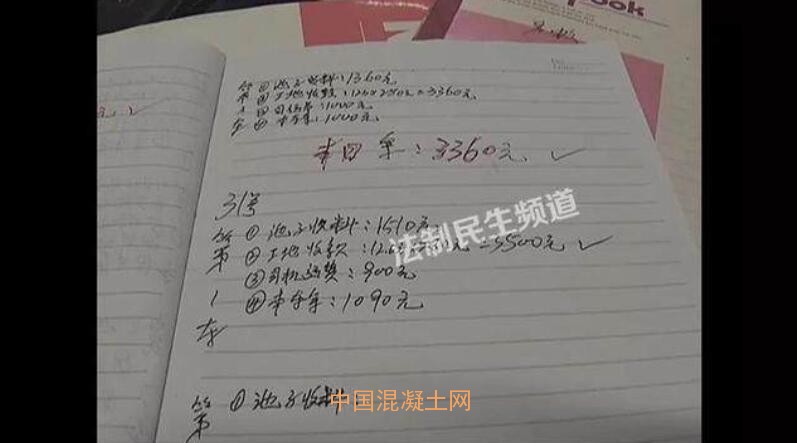 ook
① 池子收料：1360元
② 工地收款：12.5×280元=3360元
③ 司机费：1000元
④ 本车余：1000元
元 ✓
本日余：3360元 ✓
31号
第 ① 池子收料：1510元
② 工地收款：=3500元 ✓
③ 司机运费：900元
1 ④ 本车余：1090元
车
第 ① 池子收料：
法制民生频道
中国混凝土网